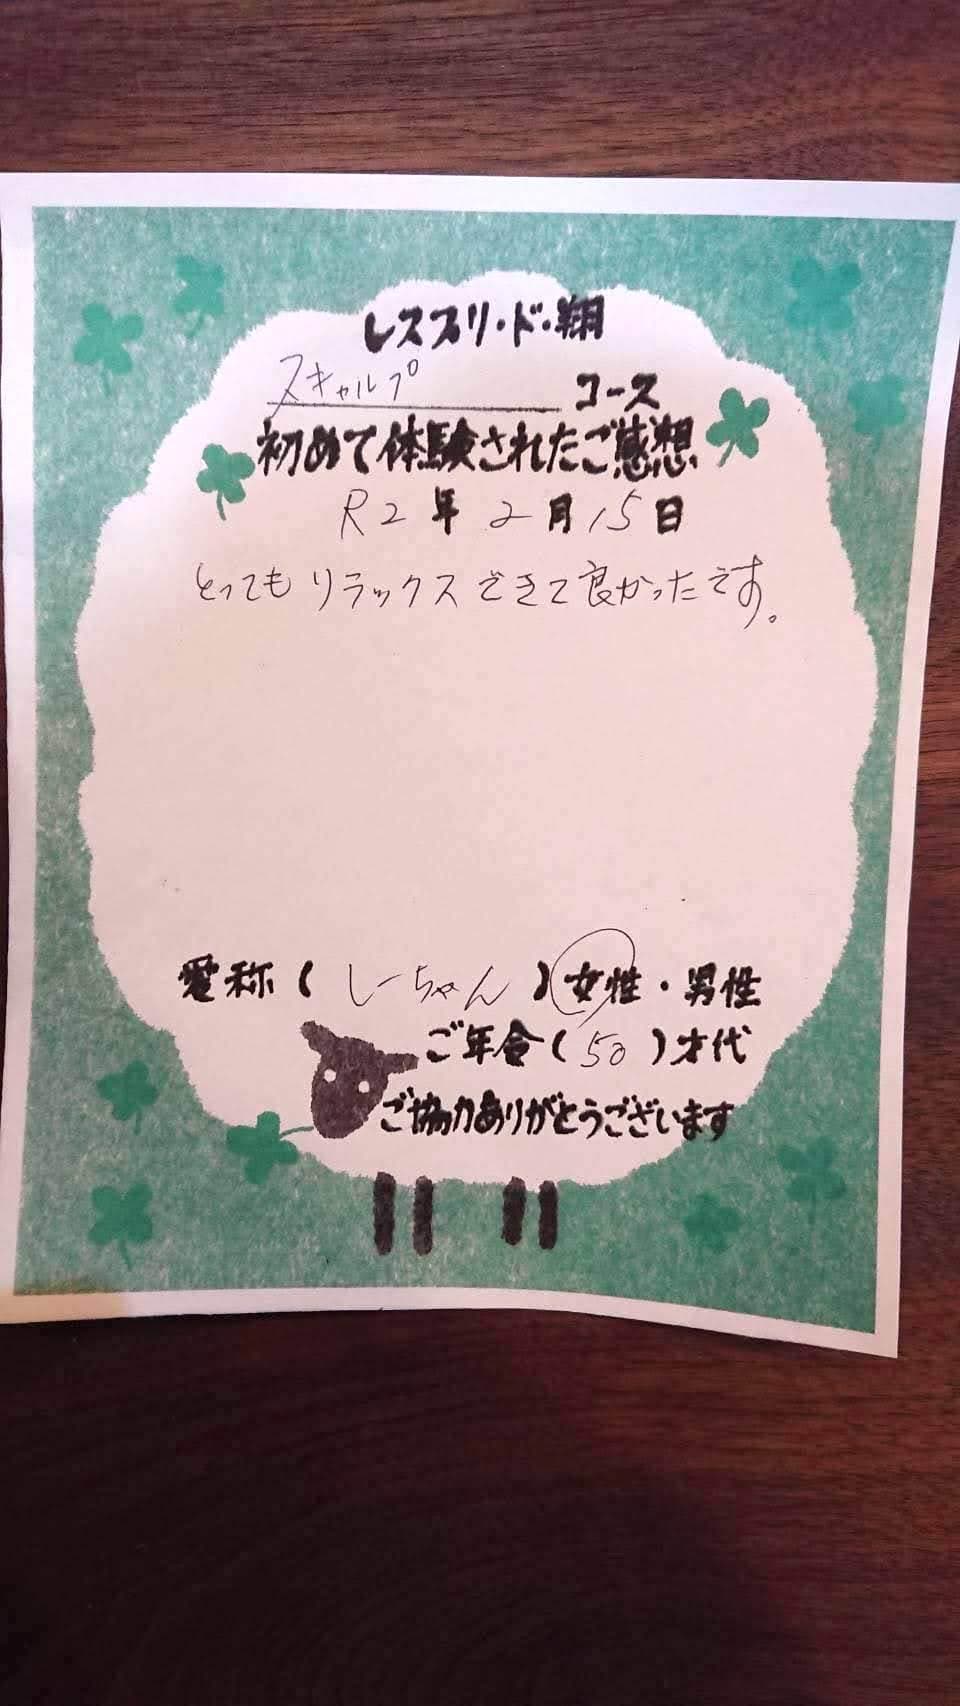 レスプリ・ド・翔
スキャルプ コース
初めて体験されたご感想
R2年2月15日
とってもリラックスできて良かったです。
愛称(しーちゃん)女性・男性
ご年令(50)才代
ご協力ありがとうございます